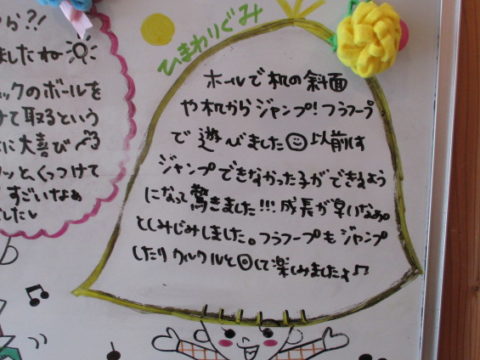 ひまわりぐみ
ホールで机の斜面
や机からジャンプ!フラフープ
で遊びました 以前は
ジャンプできなかった子ができるよう
になって驚きました!!!成長が早いなぁ。
としみじみしました。フラフープもジャンプ
したりクルクルと回して楽しみましたよ♪
から?!
ましたね
ックのボールを
けて取るという
に大喜び
ッとくっつけて
すごいなぁ
した